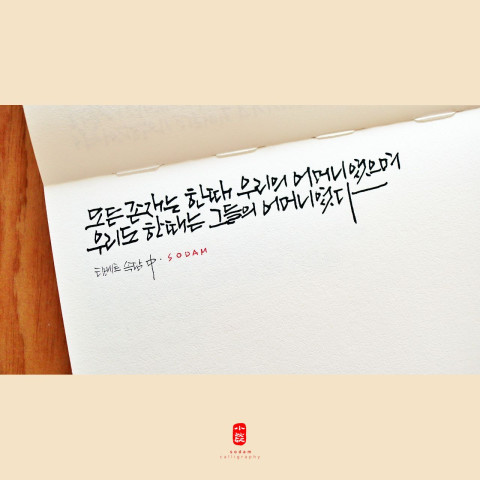 모든 존재는 한때 우리의 어머니였으며
우리도 한때는 그들의 어머니였다
티베트 속담 中. SODAM
sodam
calligraphy